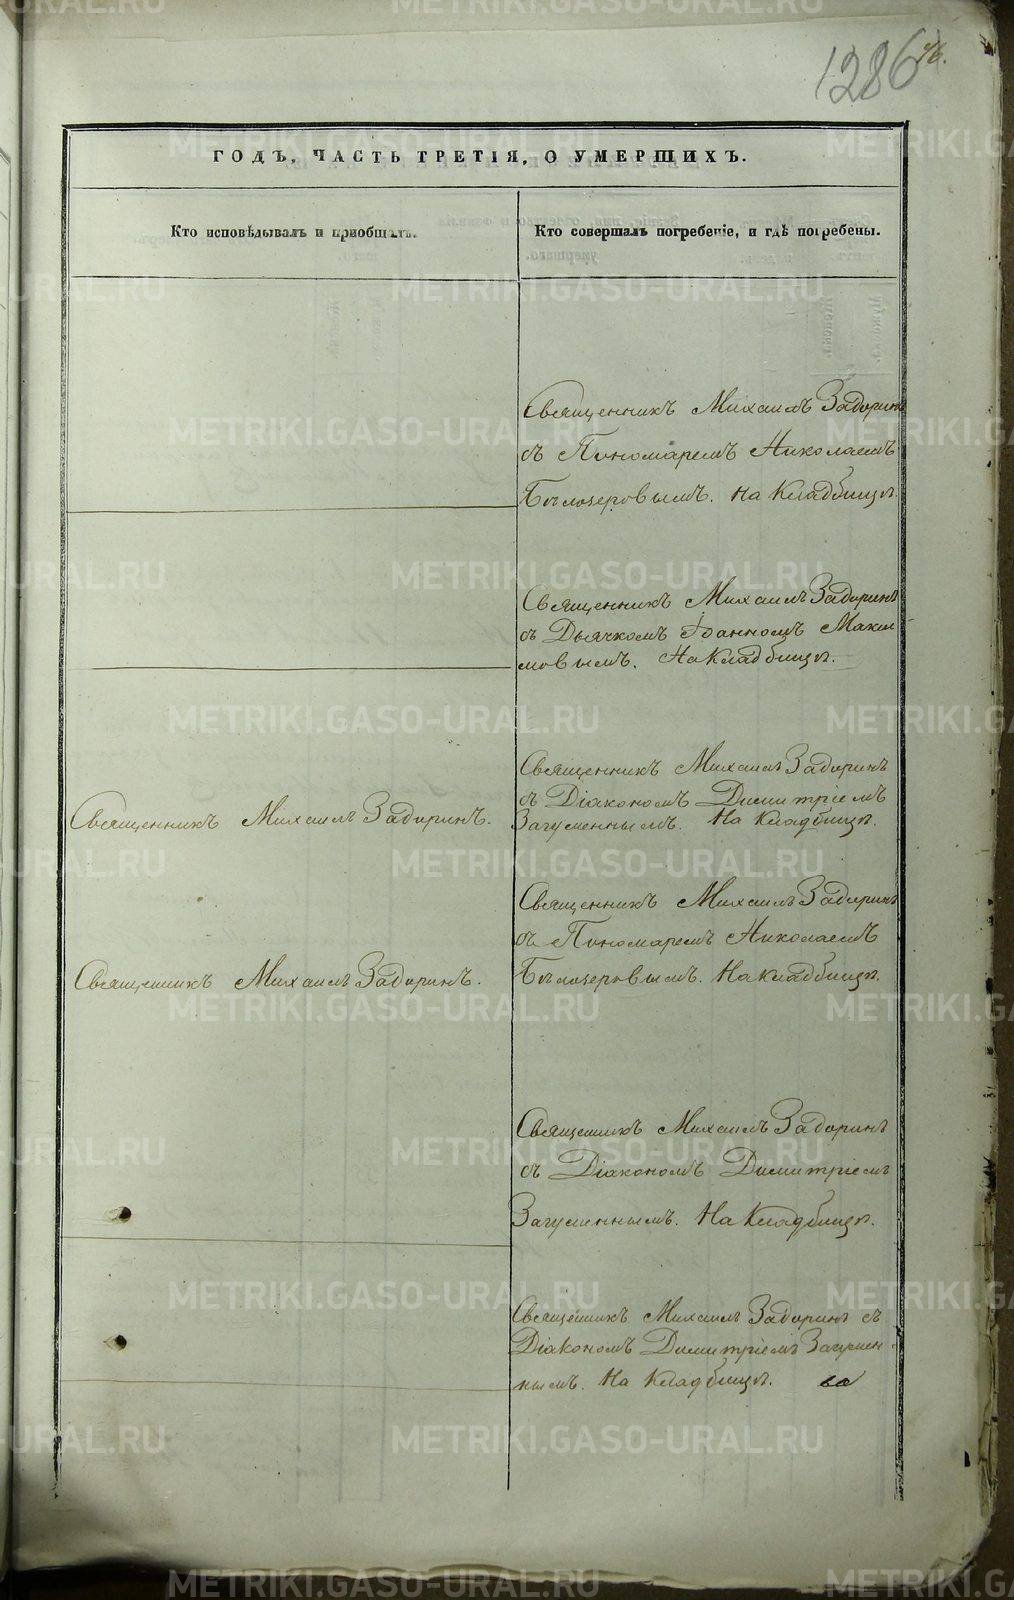 1286
76.
ГОДЪ, ЧАСТЬ ТРЕТІЯ, О УМЕРШИХЪ.
Кто исповѣдывалъ и приобщалъ.
Кто совершалъ погребеніе, и гдѣ погребены.
Священникъ Михаилъ Задоринъ
съ Пономаремъ Николаемъ
Бѣлозеровымъ. На Кладбищѣ.
Священникъ Михаилъ Задоринъ
съ Дьячкомъ Іоанномъ Макси
мовымъ. На Кладбищѣ.
Священникъ Михаилъ Задоринъ.
Священникъ Михаилъ Задоринъ
съ Діакономъ Димитріемъ
Загуменнымъ. На Кладбищѣ.
Священникъ Михаилъ Задоринъ.
Священникъ Михаилъ Задоринъ
съ Пономаремъ Николаемъ
Бѣлозеровымъ. На Кладбищѣ.
Священникъ Михаилъ Задоринъ
съ Діакономъ Димитріемъ
Загуменнымъ. На Кладбищѣ.
Священникъ Михаилъ Задоринъ съ
Діакономъ Димитріемъ Загумен-
нымъ. На Кладбищѣ.
METRIKI.GASO-URAL.RU